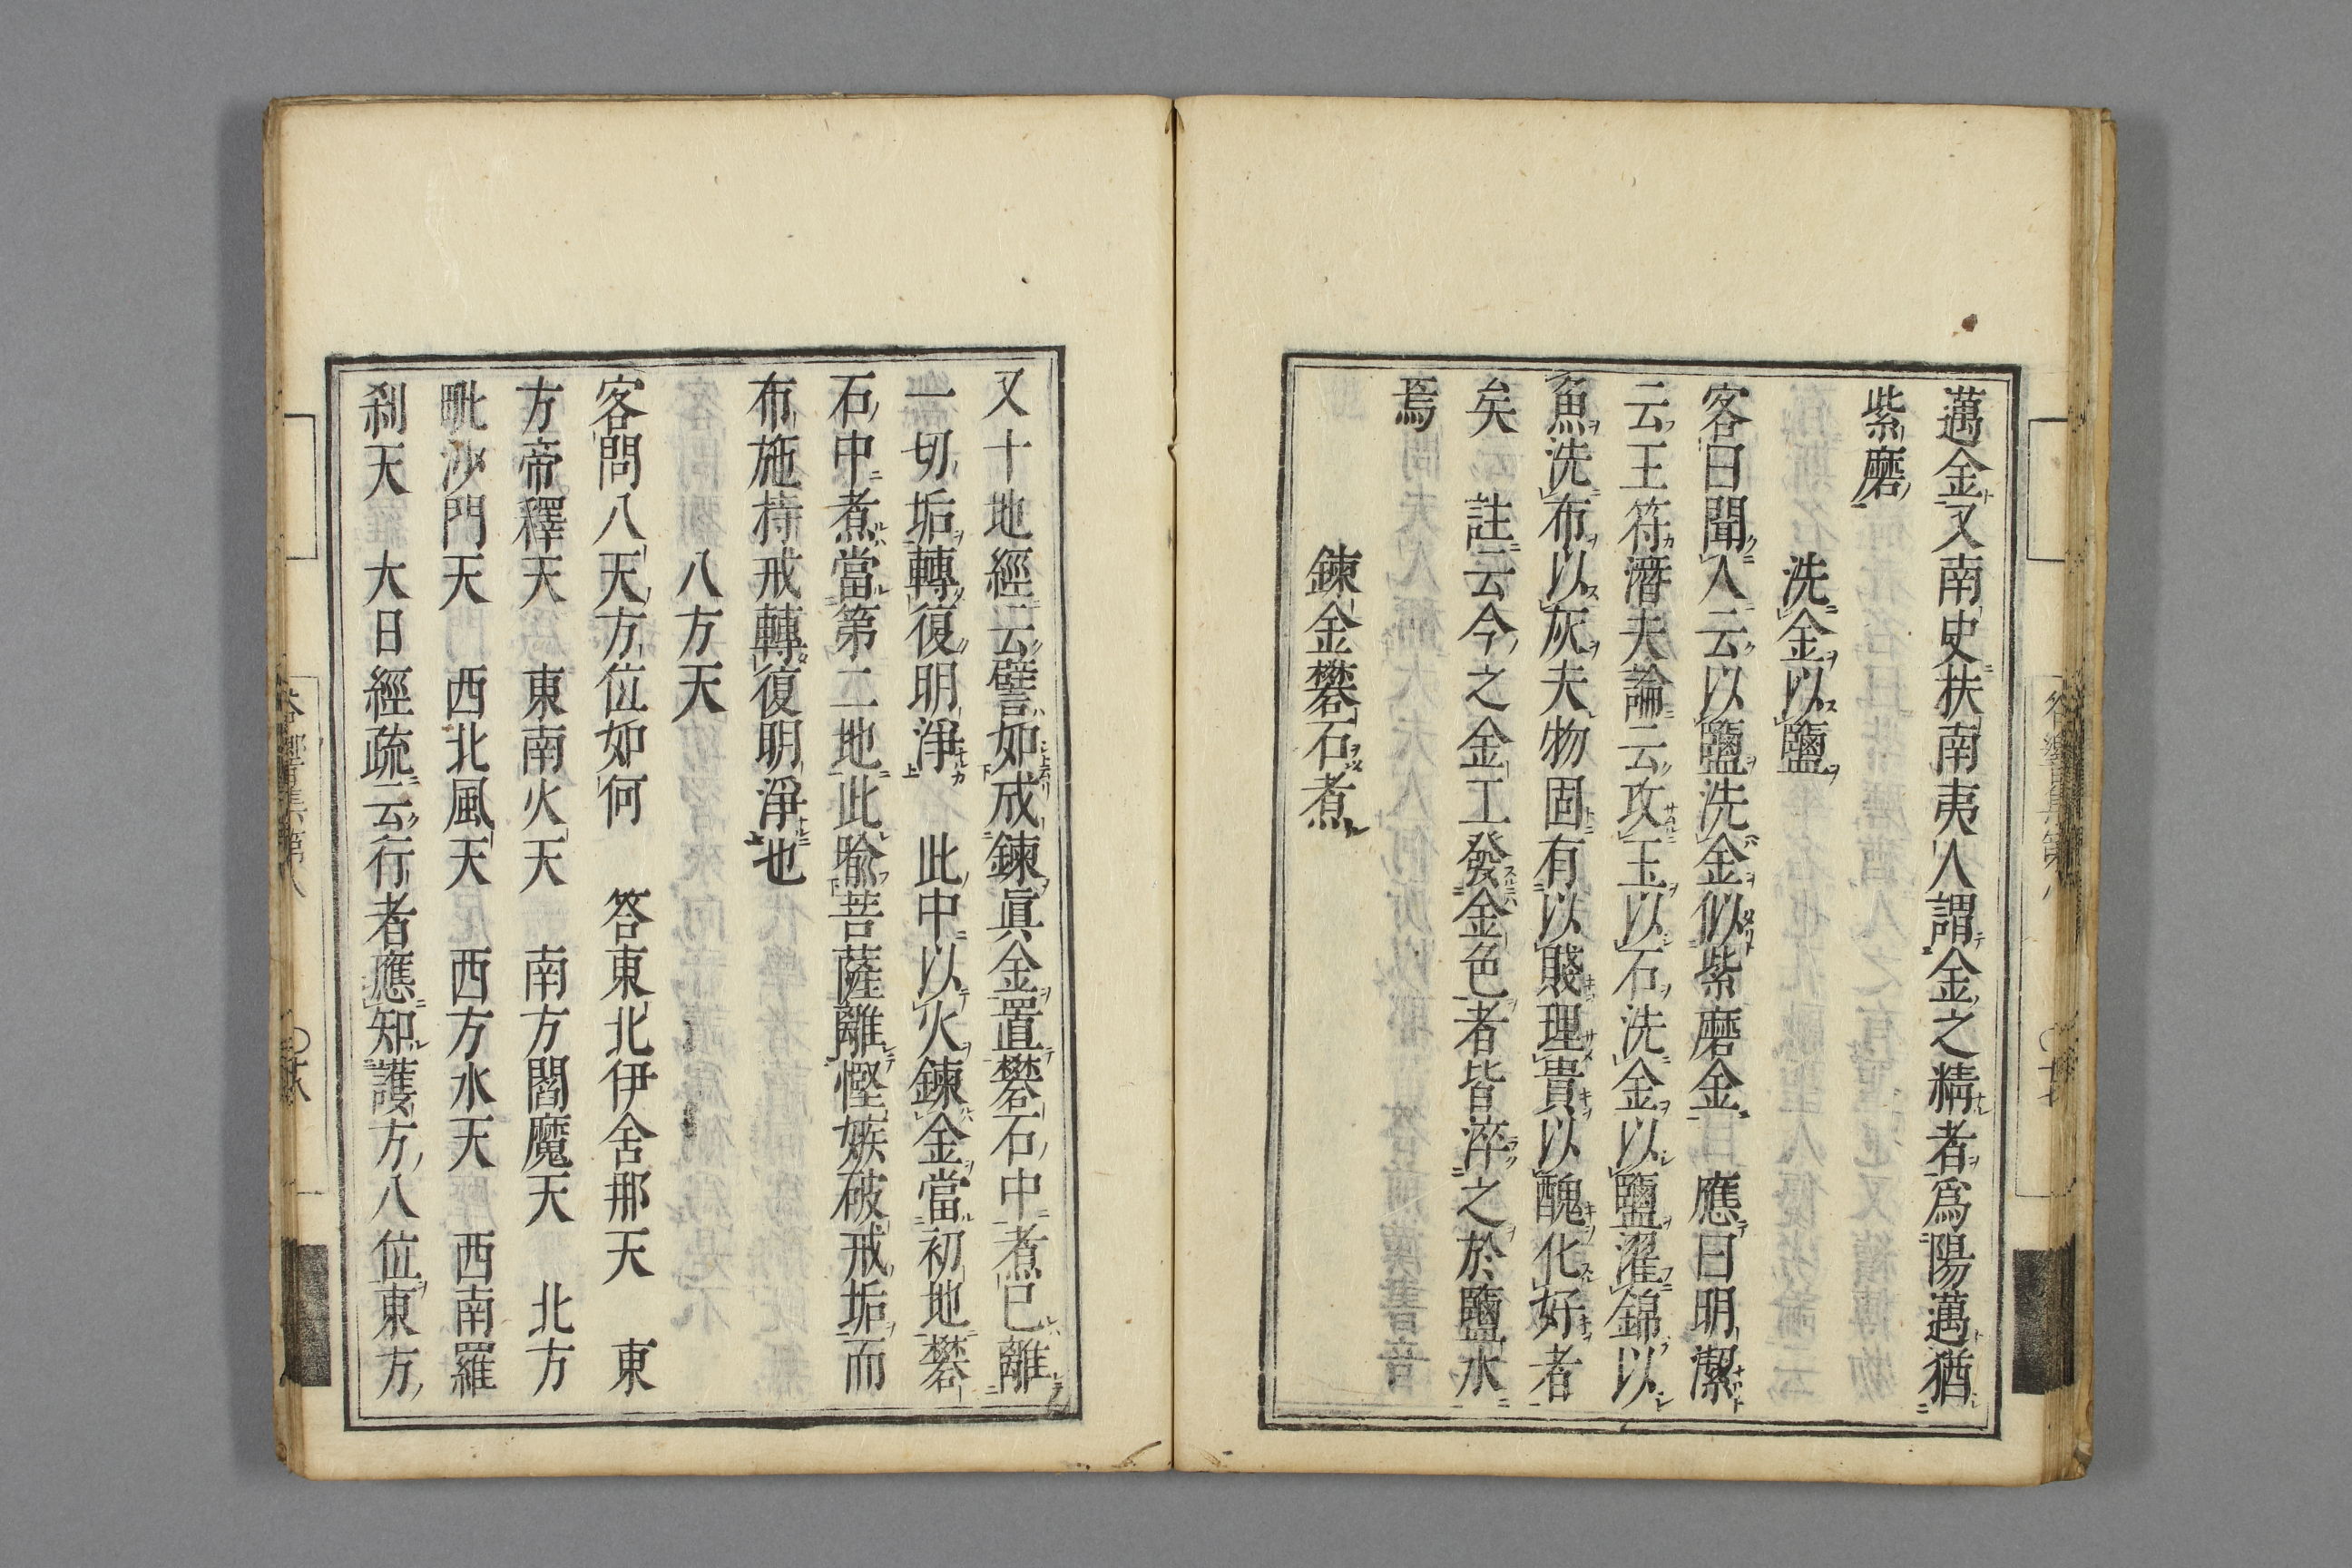 邁金又南史扶南夷人謂金之精者爲陽邁猶
紫磨
洗金以鹽
客曰聞人云以鹽洗金似紫磨金　應曰明潔
云王符潛夫論云攻玉以石洗金以鹽濯錦以
魚洗布以灰夫物固有以賤理貴以醜化好者
矣　註云今之金工發金色者皆淬之於鹽水
焉
鍊金礬石煮
又十地經云譬如成鍊眞金置礬石中煮已離
一切垢轉復明淨　此中以火鍊金當初地礬
石中煮當第二地此喩菩薩離慳嫉破戒垢而
布施持戒轉復明淨也
八方天
客問八天方位如何　答東北伊舍那天　東
方帝釋天　東南火天　南方閻魔天　北方
毗沙門天　西北風天　西方水天　西南羅
剎天　大日經疏云行者應知護方八位東方